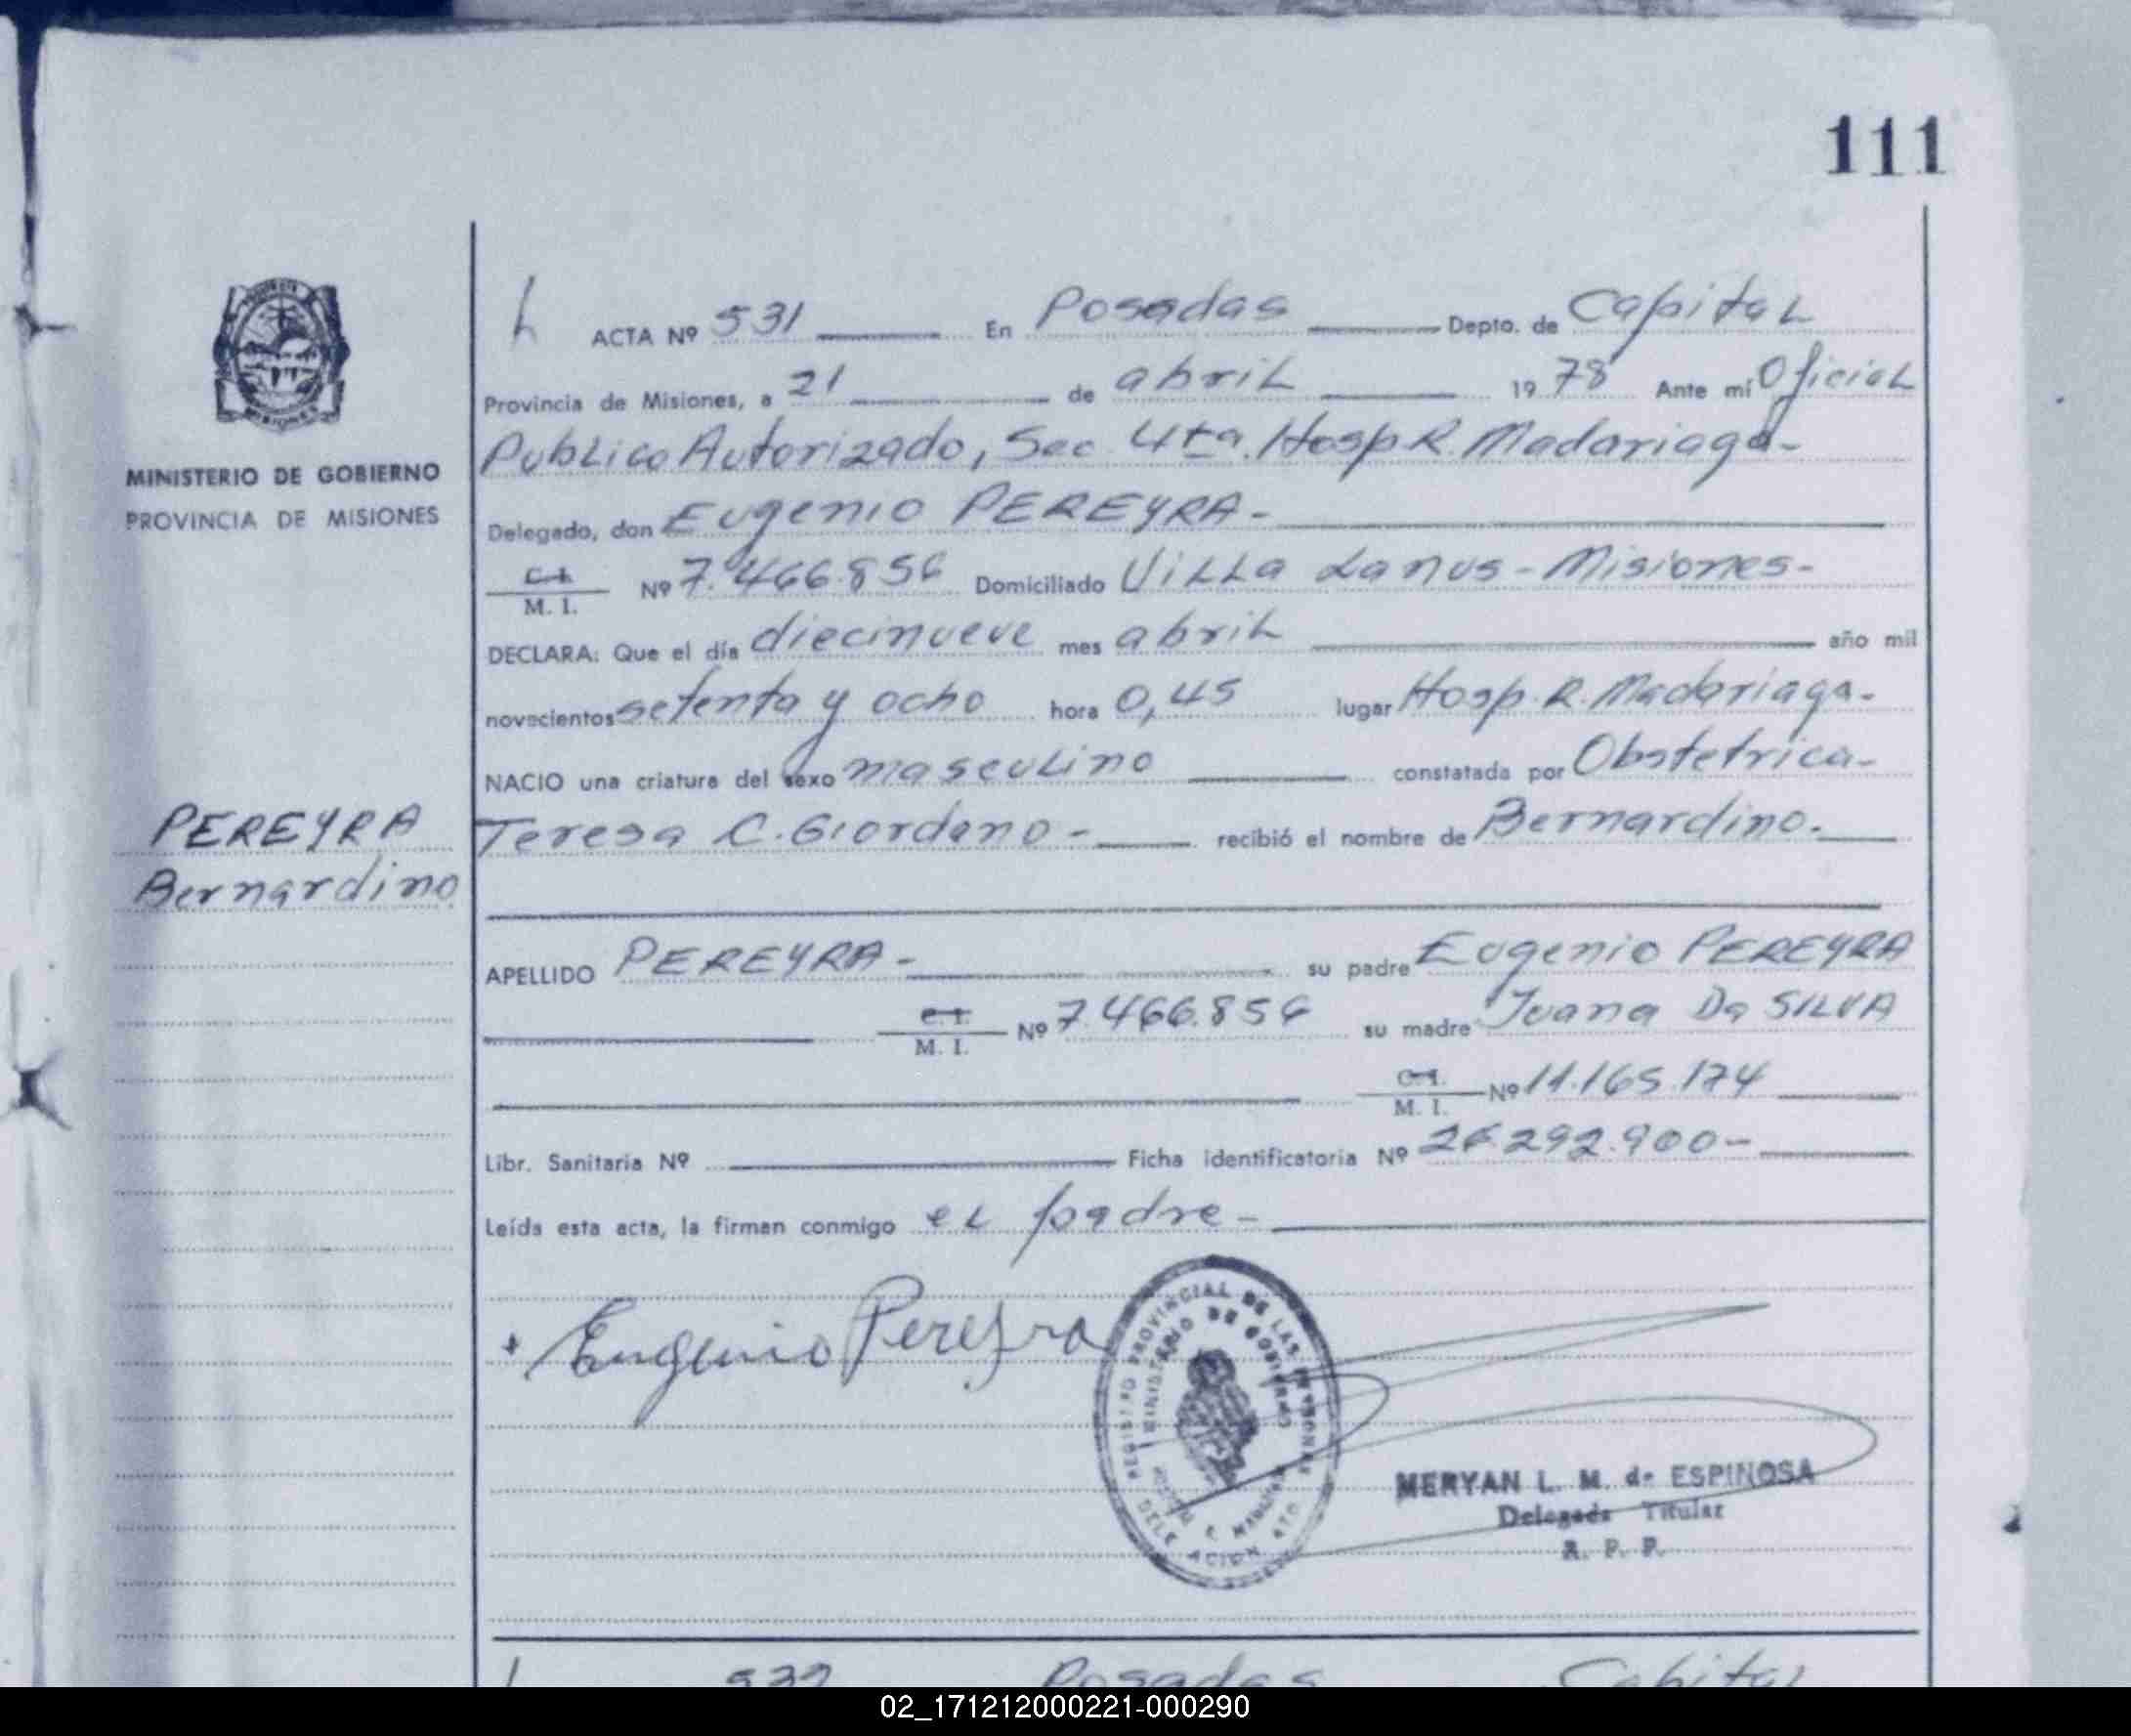 111
L ACTA Nº 531 En Posadas Depto. de Capital
Provincia de Misiones, a 21 de abril 1978 Ante mí Oficial
Publico Autorizado, Sec. 4ta. Hosp R. Madariaga-
MINISTERIO DE GOBIERNO
PROVINCIA DE MISIONES
Delegado, don Eugenio PEREYRA-
C. I.
M. I. Nº 7.466.856 Domiciliado Villa Lanus - Misiones-
DECLARA: Que el día diecinueve mes abril año mil
novecientos setenta y ocho hora 0,45 lugar Hosp. R. Madariaga-
NACIO una criatura del sexo masculino constatada por Obstetrica-
Teresa C. Giordano- recibió el nombre de Bernardino.
PEREYRA
Bernardino
APELLIDO PEREYRA- su padre Eugenio PEREYRA
C. I.
M. I. Nº 7.466.856 su madre Juana Da SILVA
C. I.
M. I. Nº 11.165.174
Libr. Sanitaria Nº Ficha identificatoria Nº 26.292.900-
Leída esta acta, la firman conmigo el padre-
Eugenio Pereyra
REGISTRO PROVINCIAL DE LAS PERSONAS
MINISTERIO DE GOBIERNO
DELEGACION 4TO
MERYAN L. M. de ESPINOSA
Delegada Titular
R. P. P.
532 Posadas Capital
02_171212000221-000290